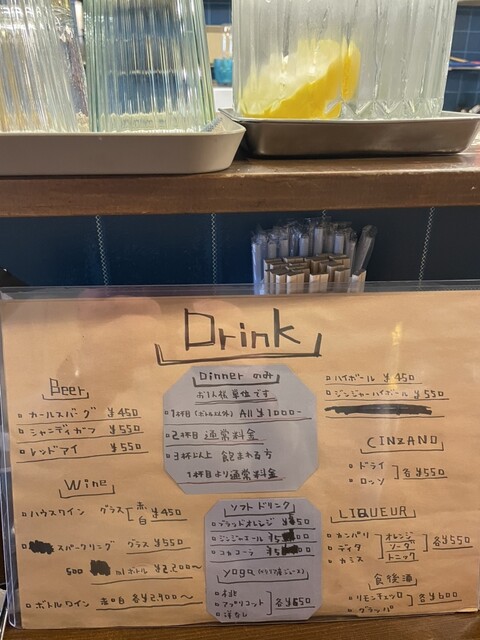 Drink
Beer
カールスバーグ ¥450
シャンディガフ ¥550
レッドアイ ¥550
Wine
ハウスワイン グラス 赤 白 ¥450
スパークリング グラス ¥550
500mlボトル ¥2,200〜
ボトルワイン 赤・白 各¥2,900〜
Dinner のみ
お1人様単位です
1杯目(ボトル以外) All ¥1000-
2杯目 通常料金
3杯以上 飲まれる方
1杯目より通常料金
ソフトドリンク
ブラッドオレンジ
ジンジャーエール
コカコーラ
yoga
桃
アプリコット
洋なし
各¥550
ハイボール ¥450
ジンジャーハイボール ¥550
CINZANO
ドライ
ロッソ
各¥550
LIQUEUR
カンパリ
ディタ
カシス
オレンジ
ソーダ
トニック
各¥550
食後酒
リモンチェッロ
グラッパ
各¥600